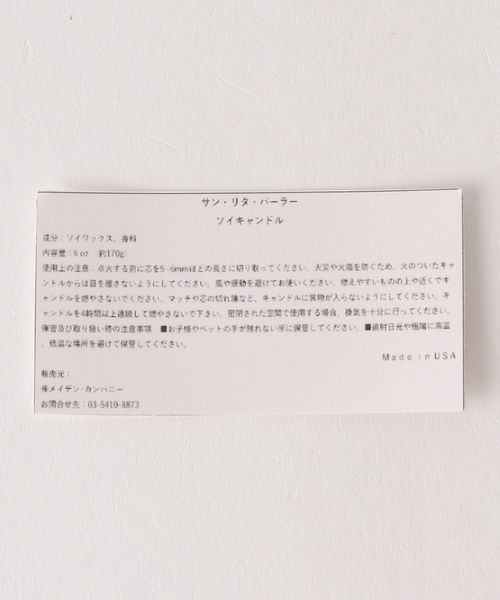 サン・リタ・パーラー
ソイキャンドル
成分：ソイワックス、香料
内容量：6 oz　約170g）
使用上の注意：点火する前に芯を5-6mmほどの長さに切り取ってください。火災や火傷を防ぐため、火のついたキャ
ンドルからは目を離さないようにしてください。風や振動を避けてお使いください。燃えやすいものの上や近くでキ
ャンドルを燃やさないでください。マッチや芯の切れ端など、キャンドルに異物が入らないようにしてください。キ
ャンドルを4時間以上連続して燃やさないで下さい。密閉された空間で使用する場合、換気を十分に行ってください。
保管及び取り扱い時の注意事項　■お子様やペットの手が触れない所に保管してください。■直射日光や極端に高温
、低温な場所を避けて保管してください。
Made in USA
販売元：
㈱メイデン・カンパニー
お問合せ先：03-5410-8873